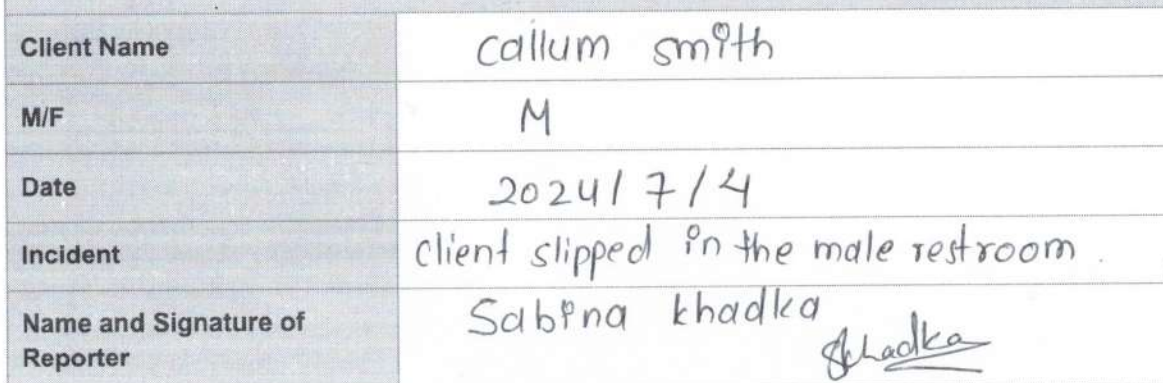 Client Name callum smith
M/F M
Date 2024/7/4
Incident client slipped in the male restroom.
Name and Signature of Sabina khadka
Reporter Skhadka